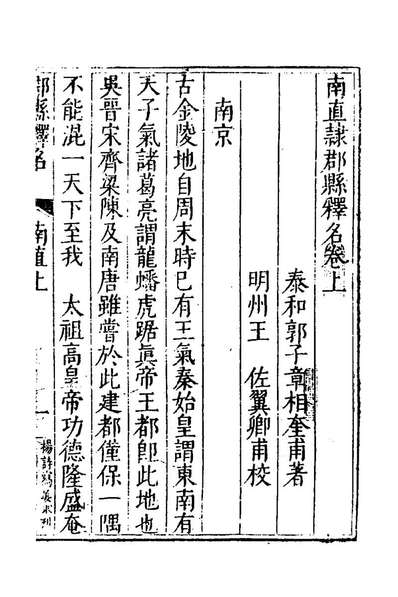 南直隷郡縣釋名卷上
泰和郭子章相奎甫著
明州王　佐翼卿甫校
南京
古金陵地自周末時已有王氣秦始皇謂東南有
天子氣諸葛亮謂龍蟠虎踞眞帝王都卽此地也
吳晉宋齊梁陳及南唐雖嘗於此建都僅保一隅
不能混一天下至我　太祖高皇帝功德隆盛奄
郡縣釋名
南直上
一